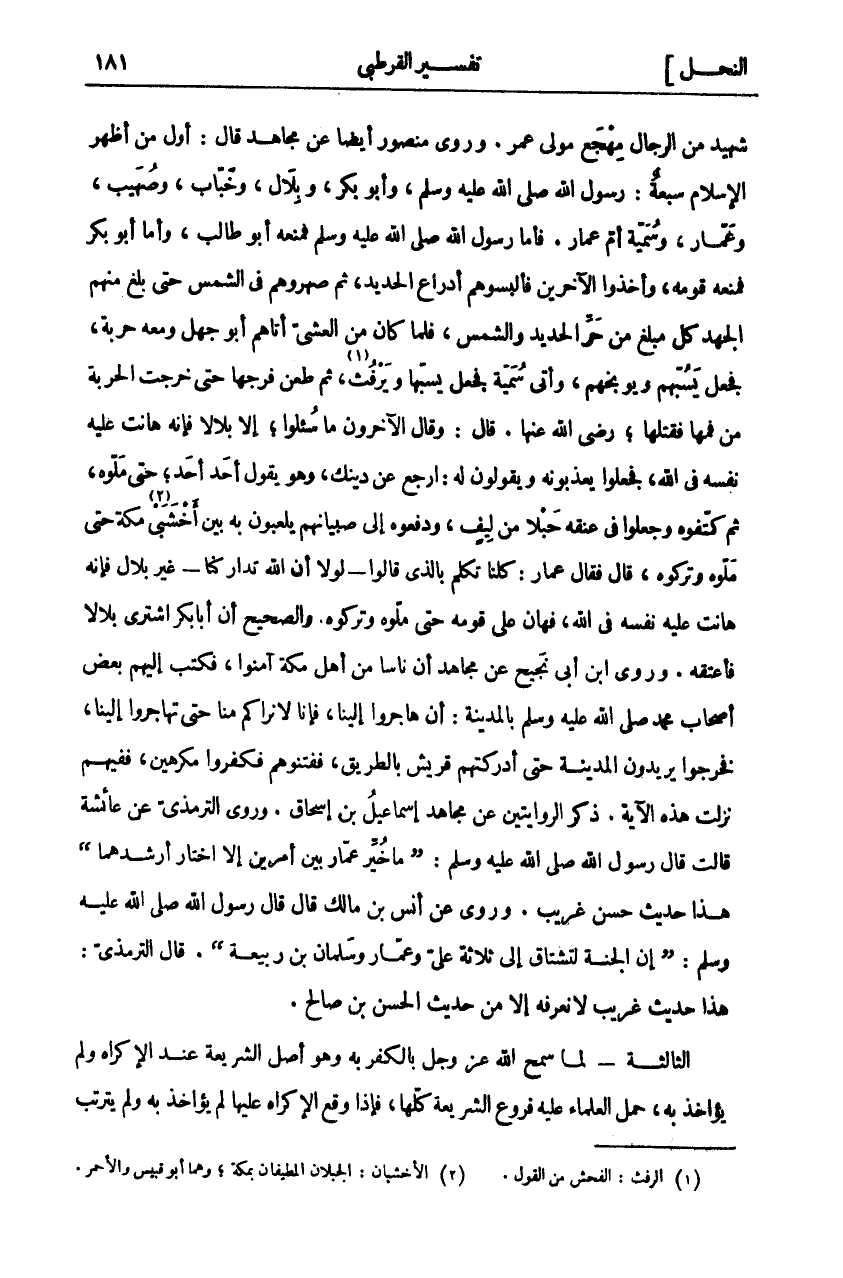 النحـــل ] تفســـير القرطبى ١٨١
شهيد من الرجال مِهْجَع مولى عمر . وروى منصور أيضا عن مجاهـد قال : أول من أظهر
الإسلام سبعةٌ : رسول الله صلى الله عليه وسلم ، وأبو بكر ، وبِلَال ، وخَبّاب ، وصُهَيب ،
وعَمّـار ، وسُمَيّة أمّ عمار . فأما رسول الله صلى الله عليه وسلم فمنعه أبو طالب ، وأما أبو بكر
فمنعه قومه ، وأخذوا الآخرين فألبسوهم أدراع الحديد، ثم صهروهم فى الشمس حتى بلغ منهم
الجهد كل مبلغ من حَرّ الحديد والشمس ، فلما كان من العشىّ أتاهم أبو جهل ومعه حربة ،
فجعل يَسُبّهم ويوبخهم ، وأتى سُمَيّة فجعل يسبّها ويَرْفُث(١)، ثم طعن فرجها حتى خرجت الحربة
من فمها فقتلها ؛ رضى الله عنها . قال : وقال الآخرون ما سُئلوا ؛ إلا بلالا فإنه هانت عليه
نفسه فى الله، فجعلوا يعذبونه ويقولون له : ارجع عن دينك، وهو يقول أَحَد أَحَد ؛ حتى مَلّوه ،
ثم كتّفوه وجعلوا فى عنقه حَبْلا من لِيفٍ ، ودفعوه إلى صبيانهم يلعبون به بين أَخْشَبَىْ(٢) مكة حتى
مَلّوه وتركوه ، قال فقال عمار : كلنا تكلم بالذى قالوا ــ لولا أن الله تداركنا ــ غير بلال فإنه
هانت عليه نفسه فى الله، فهان على قومه حتى ملّوه وتركوه. والصحيح أن أبابكر اشترى بلالا
فأعتقه . وروى ابن أبى نَجيح عن مجاهد أن ناسا من أهل مكة آمنوا ، فكتب إليهم بعض
أصحاب محمد صلى الله عليه وسلم بالمدينة : أن هاجروا إلينا ، فإنا لانراكم منا حتى تهاجروا إلينا ،
فخرجوا يريدون المدينــة حتى أدركتهم قريش بالطريق ، ففتنوهم فكفروا مكرهين، ففيهــم
نزلت هذه الآية . ذكر الروايتين عن مجاهد إسماعيلُ بن إسحاق . وروى الترمذىّ عن عائشة
قالت قال رسول الله صلى الله عليه وسلم : ” ماخُيِّر عمّار بين أمرين إلا اختار أرشـدهما “
هــذا حديث حسن غريب . وروى عن أنس بن مالك قال قال رسول الله صلى الله عليــه
وسلم : ” إن الجنــة لتشتاق إلى ثلاثة علىّ وعمّـار وسَلمان بن ربيعــة “ . قال الترمذىّ :
هذا حديث غريب لانعرفه إلا من حديث الحسن بن صالح .
الثالثــــة ــ لمـا سمح الله عز وجل بالكفر به وهو أصل الشريعة عنــد الإكراه ولم
يؤاخذ به ، حمل العلماء عليه فروع الشريعة كلّها ، فإذا وقع الإكراه عليها لم يؤاخذ به ولم يترتب
(١) الرفث : الفحش من القول . (٢) الأخشبان : الجبلان المطيفان بمكة ؛ وهما أبو قبيس والأحمر .